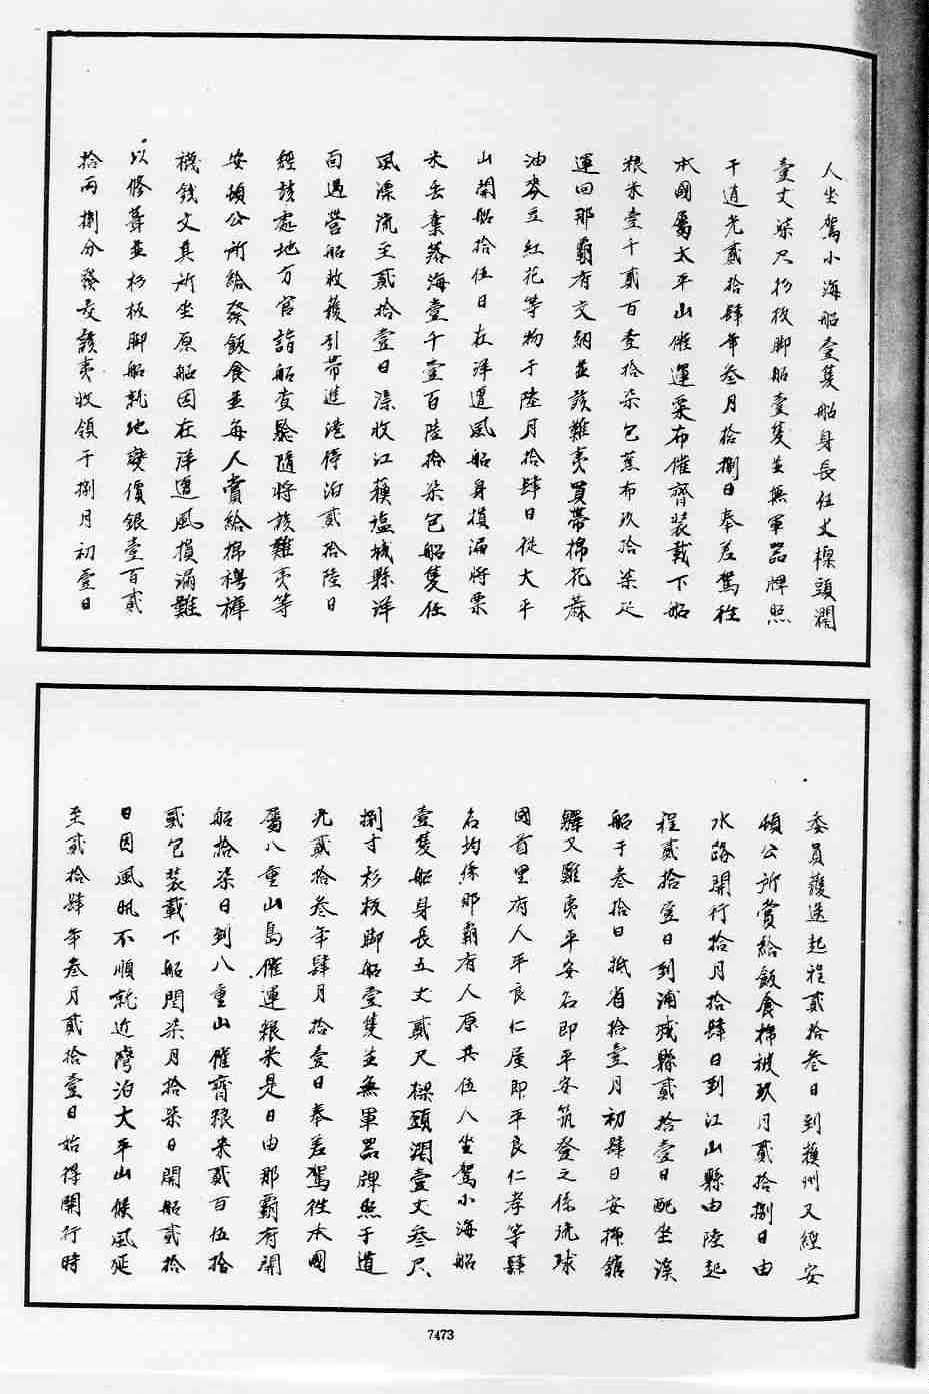 人坐駕小海船壹隻船身長伍丈樑頭濶
壹丈柒尺杉板脚船壹隻並無軍器牌照
于道光貳拾肆年叁月拾捌日奉差駕往
本國屬太平山催運粟布催齊装載下船
粮米壹千貳百叁拾柒包蕉布玖拾柒疋
運回那霸府交納並該難夷買帶棉花蔴
油麥豆紅花等物于陸月拾肆日從太平
山開船拾伍日在洋遭風船身損漏將粟
米丟棄落海壹千壹百陸拾柒包船隻任
風漂流至貳拾壹日漂收江蘇塩城縣洋
面遇營船救護引帶進港停泊貳拾陸日
經該處地方官詣船查騐隨將該難夷等
安頓公所給發飯食並每人賞給棉褥褲
襪錢文其所坐原船因在洋遭風損漏難
以修葺並杉板脚船就地變價銀壹百貳
拾兩捌分發交該夷收領于捌月初壹日
委員護送起程貳拾叁日到蘇州又經安
頓公所賞給飯食棉被玖月貳拾捌日由
水路開行拾月拾肆日到江山縣由陸起
程貳拾壹日到浦城縣貳拾壹日配坐溪
船于叁拾日抵省拾壹月初肆日安揷舘
驛又難夷平安名即平安筑登之係琉球
國首里府人平良仁屋即平良仁孝等肆
名均係那霸府人原共伍人坐駕小海船
壹隻船身長五丈貳尺樑頭濶壹丈叁尺
捌寸杉板脚船壹隻並無軍器牌照于道
光貳拾叁年肆月拾壹日奉差駕往本國
屬八重山島催運粮米是日由那霸府開
船拾柒日到八重山催齊粮米貳百伍拾
貳包装載下船閏柒月拾柒日開船貳拾
日因風帆不順就近灣泊太平山候風延
至貳拾肆年叁月貳拾壹日始得開行時
7473